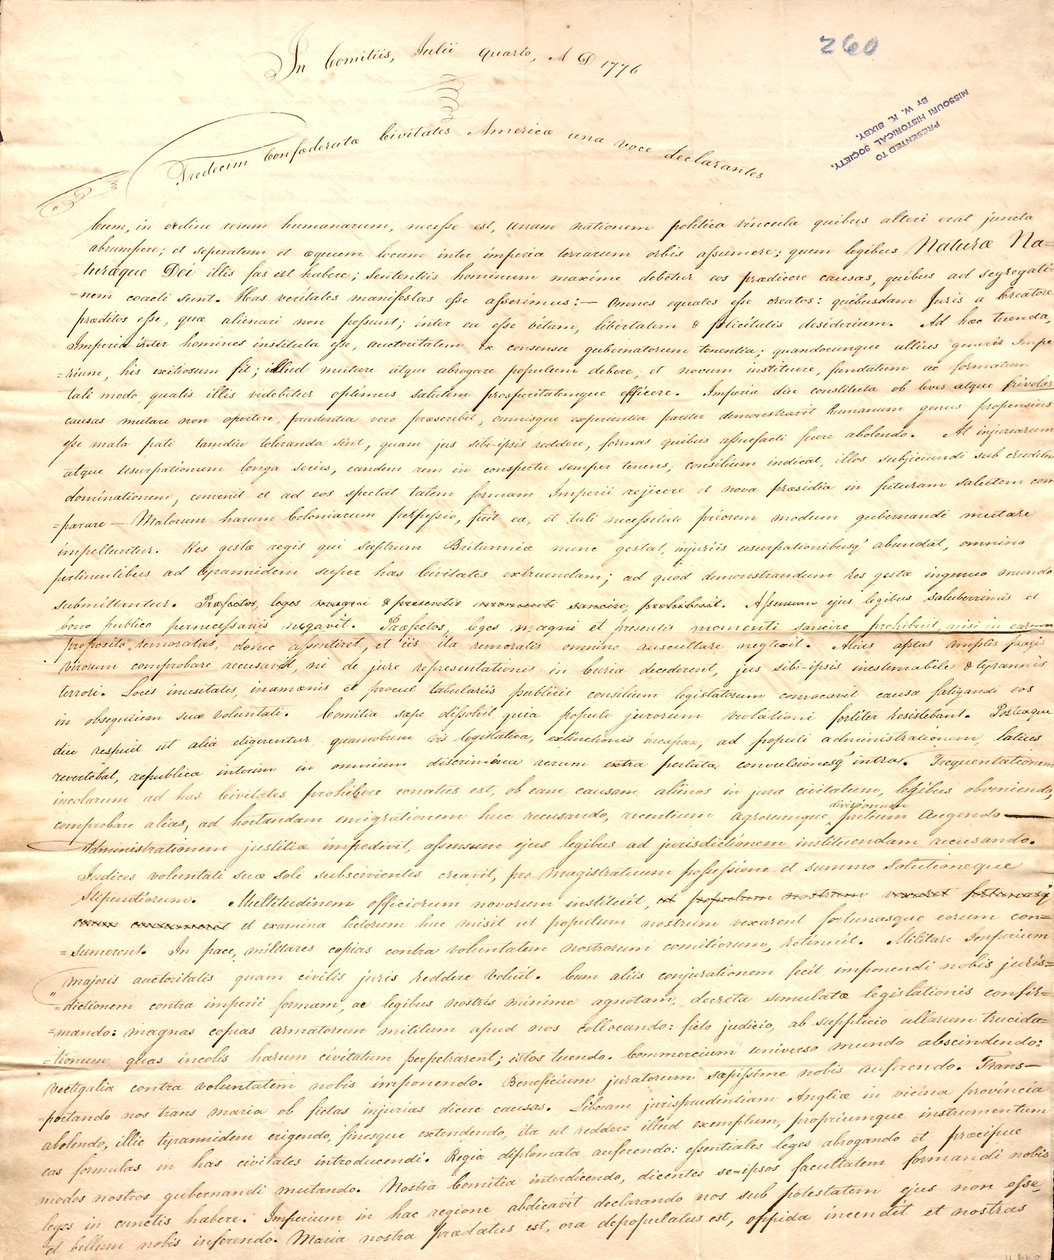 260
PRESENTED TO
MISSOURI HISTORICAL SOCIETY,
BY W. K. BIXBY.
In Comitiis, Julii quarto, A D 1776
Tredecim Confœderatæ Civitates Americæ una voce declarantes
Cum, in ordine rerum humanarum, necesse est, unam nationem politica vincula quibus alteri erat juncta
abrumpere; et seperatum et æquum locum inter imperia terrarum orbis assumere; quem legibus Naturæ Na-
-turæque Dei illis fas est habere; Sententiis hominum maxime debetur eos prædicere causas, quibus ad segregatio
nem coacti sunt. Has veritates manifestas esse asserimus:— Omnes equales esse creatos: quibusdam Juris a Creatore
præditos esse, quæ alienari non possunt; inter ea esse vitam, libertatem & felicitatis desiderium. Ad hæc tuenda,
Imperia inter homines instituta esse, auctoritatem ex consensu gubernatorum tenentia; quandocunque ullius generis Impe
-rium, his exitiosum fit; illud mutare atque abrogare populum debere, et novum instituere, fundatum ac formatum
tali modo, qualis illis videbitur optimus salutem prosperitatemque efficere. Imperia diu constituta ob leves atque frivolas
causas mutare non oportere, prudentia vero præscribit, omnisque experientia pariter demonstravit humanum genus propensius
esse mala pati tamdiu toleranda sint, quam jus sibi-ipsis reddere, formas quibus assuefacti fuere abolendo. At injuriarum
atque usurpationum longa series, eandem rem in conspectu semper tenens, consilium indicat, illos subjiciendi sub crudelem
dominationem, convenit et ad eos spectat talem formam Imperii rejicere et nova præsidia in futuram salutem com
-parare — Malorum harum Coloniarum perpessio, fuit ea, et tali necessitate priorem modum gubernandi mutare
impelluntur. Res gestæ regis qui sceptrum Britanniæ nunc gestat, injuriis usurpationibusq' abundat, omnino
pertinentibus ad tyrannidem super has Civitates extruendam; ad quod demonstrandum res gestæ ingenuo mundo
submittuntur. Præfectos, leges magni & presentis momenti sancire, prohibuit. Assensum ejus legibus saluberrimis et
bono publico pernecessariis negavit. Præfectos, leges magni et presentis momenti sancire prohibuit nisi in earum
proposito, remoratas, donec assentiret, et iis ita remoratis omnino auscultare neglexit. Alias aptas amplis pagis
virorum comprobare recusavit, ni de jure representationis in Curia decederent, jus sibi-ipsis inestimabile & tyrannis
terrori. Locis inusitatis, inamœnis et procul tabulariis publicis consilium legislatorum convocavit causa fatigandi eos
in obsequium suæ voluntati. Comitia sæpe dissolvit quia populi jurorum violationi fortiter resistebant. Posteaque
diu respuit ut alia eligerentur, quamobrem vis legislativa, extinctionis incapax, ad populi administrationem, latius
revertebat, republica interim in omnium discrimina rerum extra perlata, convulsionesq' intra. Frequentationem
incolarum ad has Civitates prohibere conatus est, ob eam causam, alienos in jura civitatum, legibus obveniendo,
comprobare alias, ad hortandam emigrationem huc recusando, recentium agrorumque divisionum pretium augendo —
Administrationem justitiæ impedivit, assensum ejus legibus ad jurisdictionem instituendam recusando.
Judices voluntati suæ sole subservientes creavit, pro magistratuum possessione, et summo solutioneque
Stipendiorum. Multitudinem officiorum novorum instituit, ad populum nostrum vexaret fortunasq'
et examina lictorum huc misit ut populum nostrum vexarent fortunasque eorum con-
-sumerent. In pace, militares copias contra voluntatem nostrorum comitiorum, retinuit. Militare Imperium
majoris auctoritatis quam civilis juris reddere voluit. Cum aliis conjurationem fecit imponendi nobis juris-
-dictionem contra imperii formam, ac legibus nostris minime agnotam, decreta simulatæ legislationis confir-
-mando: magnas copias armatorum militum apud nos collocando: ficto judicio, ab supplicio ullarum trucida-
-tionum, quas incolis harum civitatum perpetrarent; istos tuendo. Commercium universo mundo abscindendo:
vectigalia contra voluntatem nobis imponendo. Beneficium juratorum sæpissime nobis auferendo. Trans-
-portando nos trans maria ob fictas injurias dicere causas. Liberam jurisprudentiam Angliæ in vicina provincia
abolendo, illic tyrannidem erigendo, finesque extendendo, ita ut reddere illud exemplum, propriumque instrumentum
eas formulas in has civitates introducendi. Regia diplomata auferendo: essentiales leges abrogando et præcipue
modos nostros gubernandi mutando. Nostra Comitia interdicendo, dicentes se-ipsos facultatem formandi nobis
leges in cunctis habere. Imperium in hac regione abdicavit declarando nos sub potestatem ejus non esse
et bellum nobis inferendo. Maria nostra prædatus est, ora depopulatus est, oppida incendit et nostras